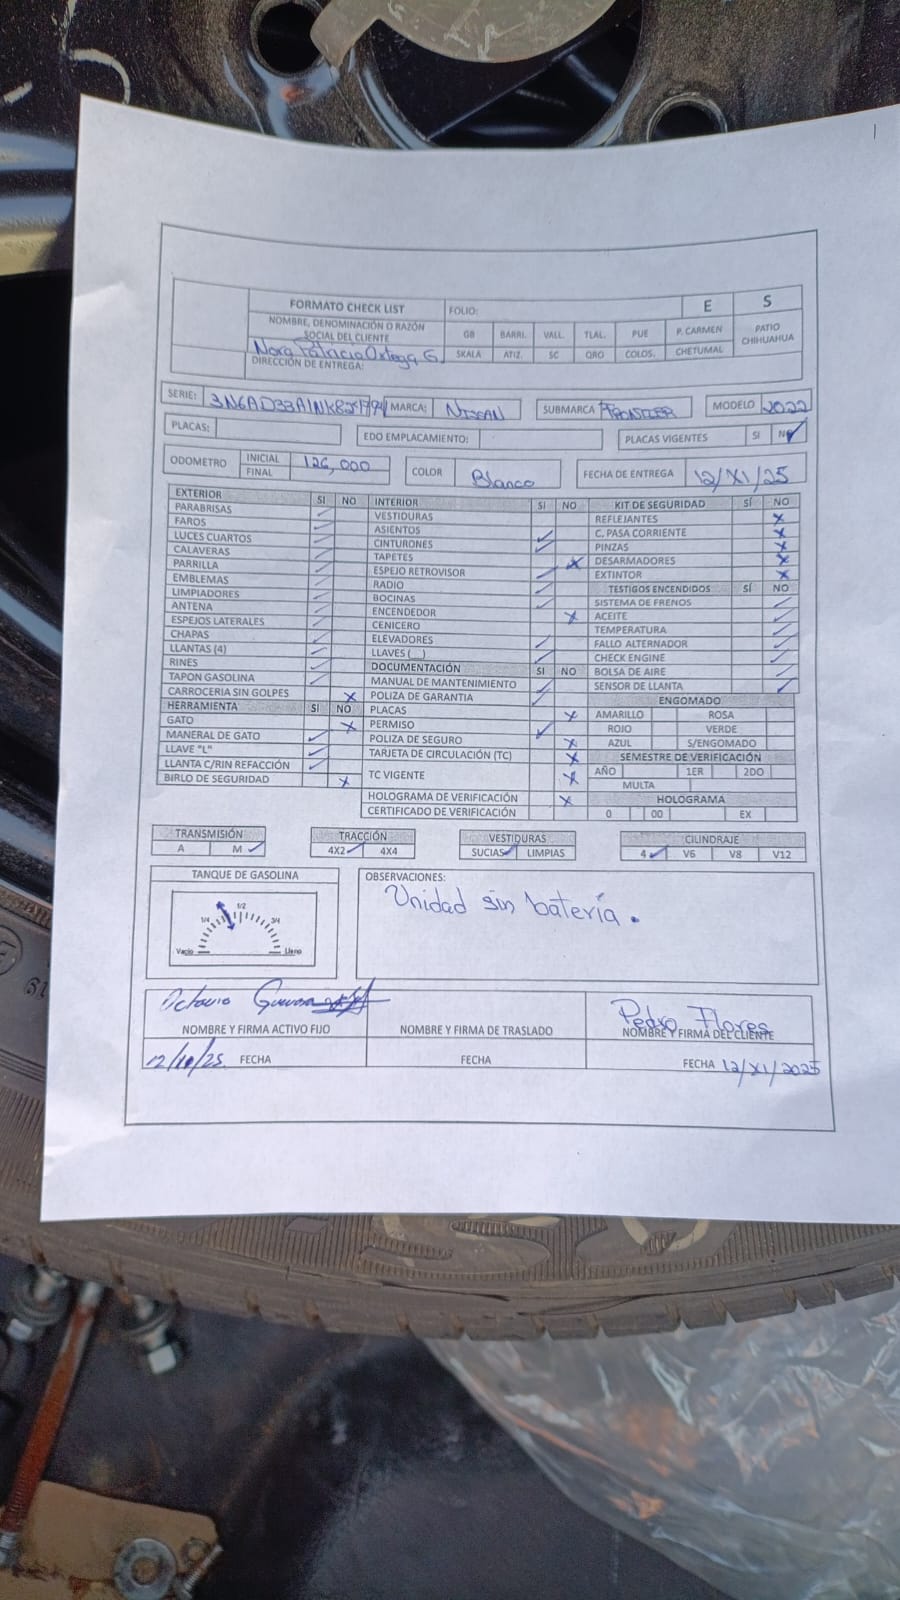 FORMATO CHECK LIST FOLIO: E S
NOMBRE, DENOMINACIÓN O RAZÓN SOCIAL DEL CLIENTE GB BARRI. VALL. TLAL. PUE P. CARMEN PATIO CHIHUAHUA
Nora Patricia Ortega G. SKALA ATIZ. SC QRO COLOS. CHETUMAL
DIRECCIÓN DE ENTREGA:
SERIE: MARCA: Nissan SUBMARCA Frontier MODELO 2022
PLACAS: EDO EMPLACAMIENTO: PLACAS VIGENTES SI NO ✓
ODOMETRO INICIAL 126,000 COLOR Blanco FECHA DE ENTREGA 12/XI/25
FINAL
EXTERIOR SI NO
PARABRISAS
FAROS
LUCES CUARTOS
CALAVERAS
PARRILLA
EMBLEMAS
LIMPIADORES
ANTENA
ESPEJOS LATERALES
CHAPAS
LLANTAS (4)
RINES
TAPON GASOLINA
CARROCERIA SIN GOLPES
HERRAMIENTA SI NO
GATO
MANERAL DE GATO
LLAVE "L"
LLANTA C/RIN REFACCIÓN
BIRLO DE SEGURIDAD
INTERIOR SI NO
VESTIDURAS
ASIENTOS
CINTURONES
TAPETES
ESPEJO RETROVISOR
RADIO
BOCINAS
ENCENDEDOR
CENICERO
ELEVADORES
LLAVES (__)
DOCUMENTACIÓN SI NO
MANUAL DE MANTENIMIENTO
POLIZA DE GARANTIA
PLACAS
PERMISO
POLIZA DE SEGURO
TARJETA DE CIRCULACIÓN (TC)
TC VIGENTE
HOLOGRAMA DE VERIFICACIÓN
CERTIFICADO DE VERIFICACIÓN
KIT DE SEGURIDAD SÍ NO
REFLEJANTES
C. PASA CORRIENTE
PINZAS
DESARMADORES
EXTINTOR
TESTIGOS ENCENDIDOS SÍ NO
SISTEMA DE FRENOS
ACEITE
TEMPERATURA
FALLO ALTERNADOR
CHECK ENGINE
BOLSA DE AIRE
SENSOR DE LLANTA
ENGOMADO
AMARILLO ROSA
ROJO VERDE
AZUL S/ENGOMADO
SEMESTRE DE VERIFICACIÓN
AÑO 1ER 2DO
MULTA
HOLOGRAMA
0 00 EX
TRANSMISIÓN TRACCIÓN VESTIDURAS CILINDRAJE
A M 4X2 4X4 SUCIAS LIMPIAS 4 V6 V8 V12
TANQUE DE GASOLINA
1/4 1/2 3/4
Vacío Lleno
OBSERVACIONES:
Unidad sin batería.
Octavio
Pedro Flores
NOMBRE Y FIRMA ACTIVO FIJO NOMBRE Y FIRMA DE TRASLADO NOMBRE Y FIRMA DEL CLIENTE
FECHA FECHA FECHA 12/XI/2025